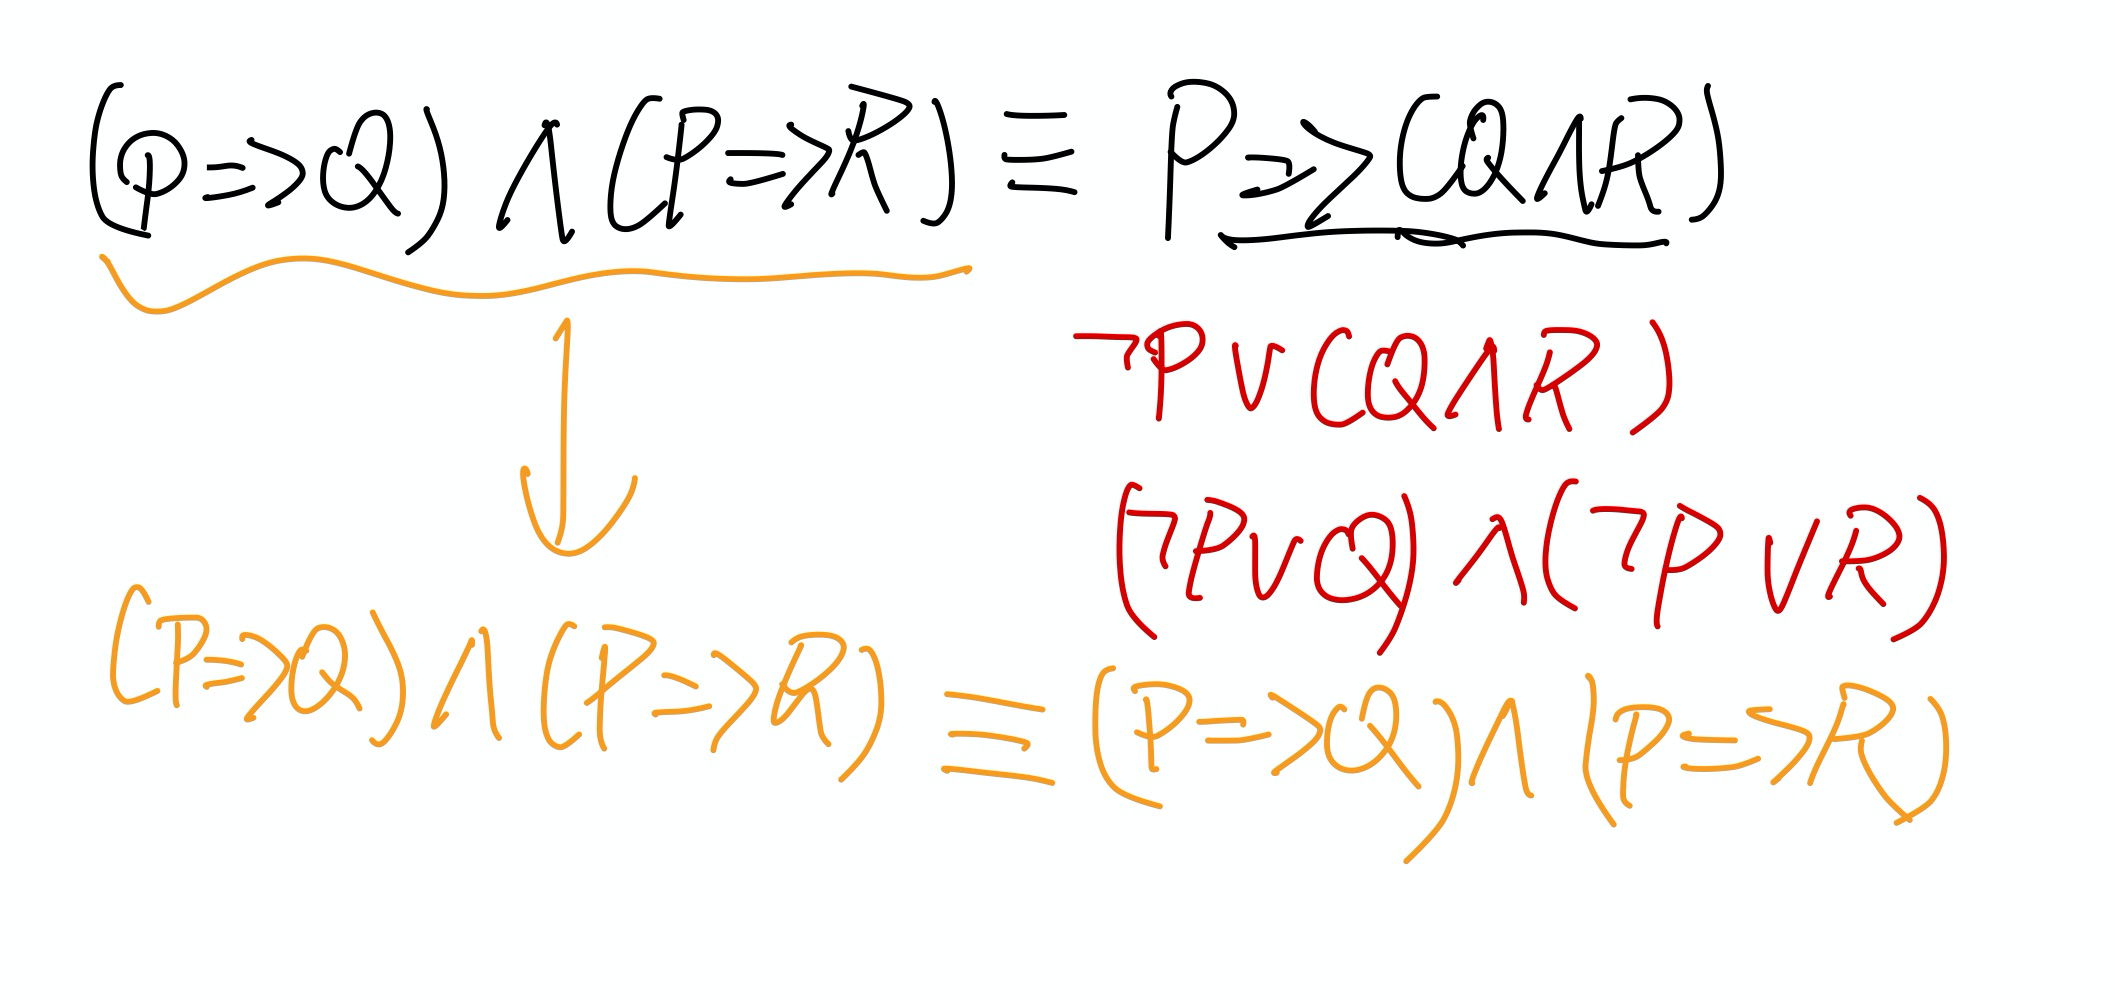 (P=>Q) ∧ (P=>R) ≡ P=>(Q∧R)
¬P∨(Q∧R)
(¬P∨Q)∧(¬P∨R)
(P=>Q)∧(P=>R) ≡ (P=>Q)∧(P=>R)